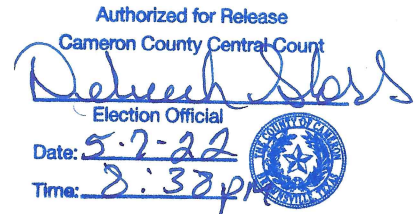 Authorized for Release
Cameron County Central Count
Election Official
Date: 5-7-22
Time: 8:38 pm
THE COUNTY OF CAMERON
BROWNSVILLE, TEXAS